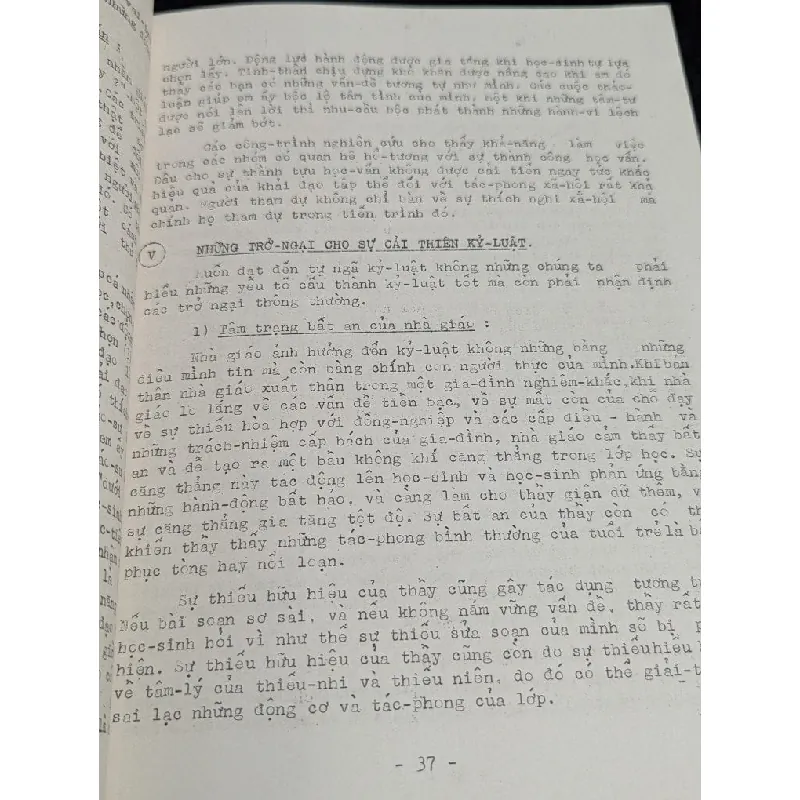 người lớn. Động lực hành động được gia tăng khi học-sinh tự lựa
chọn lấy. Tinh-thần chịu đựng khó khăn được nâng cao khi em đó
thấy các bạn có những vấn-đề tương tự như mình. Các cuộc thảo-
luận giúp em ấy bộc lộ tâm tình của mình, một khi những tâm-tư
được nói lên lời thì nhu-cầu bộc phát thành những hành-vi lệch
lạc sẽ giảm bớt.
Các công-trình nghiên cứu cho thấy khả-năng làm việc
trong các nhóm có quan hệ hỗ-tương với sự thành công học vấn.
Dầu cho sự thành tựu học-vấn không được cải tiến ngay tức khắc
hiệu quả của khải đạo tập thể đối với tác-phong xã-hội rất khả
quan. Người tham dự không chỉ bàn về sự thích nghi xã-hội mà
chính họ tham dự trong tiến trình đó.
V NHỮNG TRỞ-NGẠI CHO SỰ CẢI THIỆN KỶ-LUẬT.
Muốn đạt đến tự ngã kỷ-luật không những chúng ta phải
hiểu những yếu tố cấu thành kỷ-luật tốt mà còn phải nhận định
các trở ngại thông thường.
1) Tâm trạng bất an của nhà giáo :
Nhà giáo ảnh hưởng đến kỷ-luật không những bằng những
điều mình tin mà còn bằng chính con người thực của mình. Khi bản
thân nhà giáo xuất thân trong một gia-đình nghiêm-khắc, khi nhà
giáo lo lắng về các vấn đề tiền bạc, về sự mất còn của chỗ dạy
về sự thiếu hòa hợp với đồng-nghiệp và các cấp điều - hành và
những trách-nhiệm cấp bách của gia-đình, nhà giáo cảm thấy bất
an và dễ tạo ra một bầu không khí căng thẳng trong lớp học. Sự
căng thẳng này tác động lên học-sinh và học-sinh phản ứng bằng
những hành-động bất hảo, và càng làm cho thầy giận dữ thêm, v
sự căng thẳng gia tăng tột độ. Sự bất an của thầy còn có th
khiến thầy thấy những tác-phong bình thường của tuổi trẻ là bấ
phục tòng hay nổi loạn.
Sự thiếu hữu hiệu của thầy cũng gây tác dụng tương t
Nếu bài soạn sơ sài, và nếu không nắm vững vấn đề, thầy rất
học-sinh hỏi vì như thế sự thiếu sửa soạn của mình sẽ bị p
hiện. Sự thiếu hữu hiệu của thầy cũng còn do sự thiếu hiểu
về tâm-lý của thiếu-nhi và thiếu niên, do đó có thể giải-t
sai lạc những động cơ và tác-phong của lớp.
- 37 -